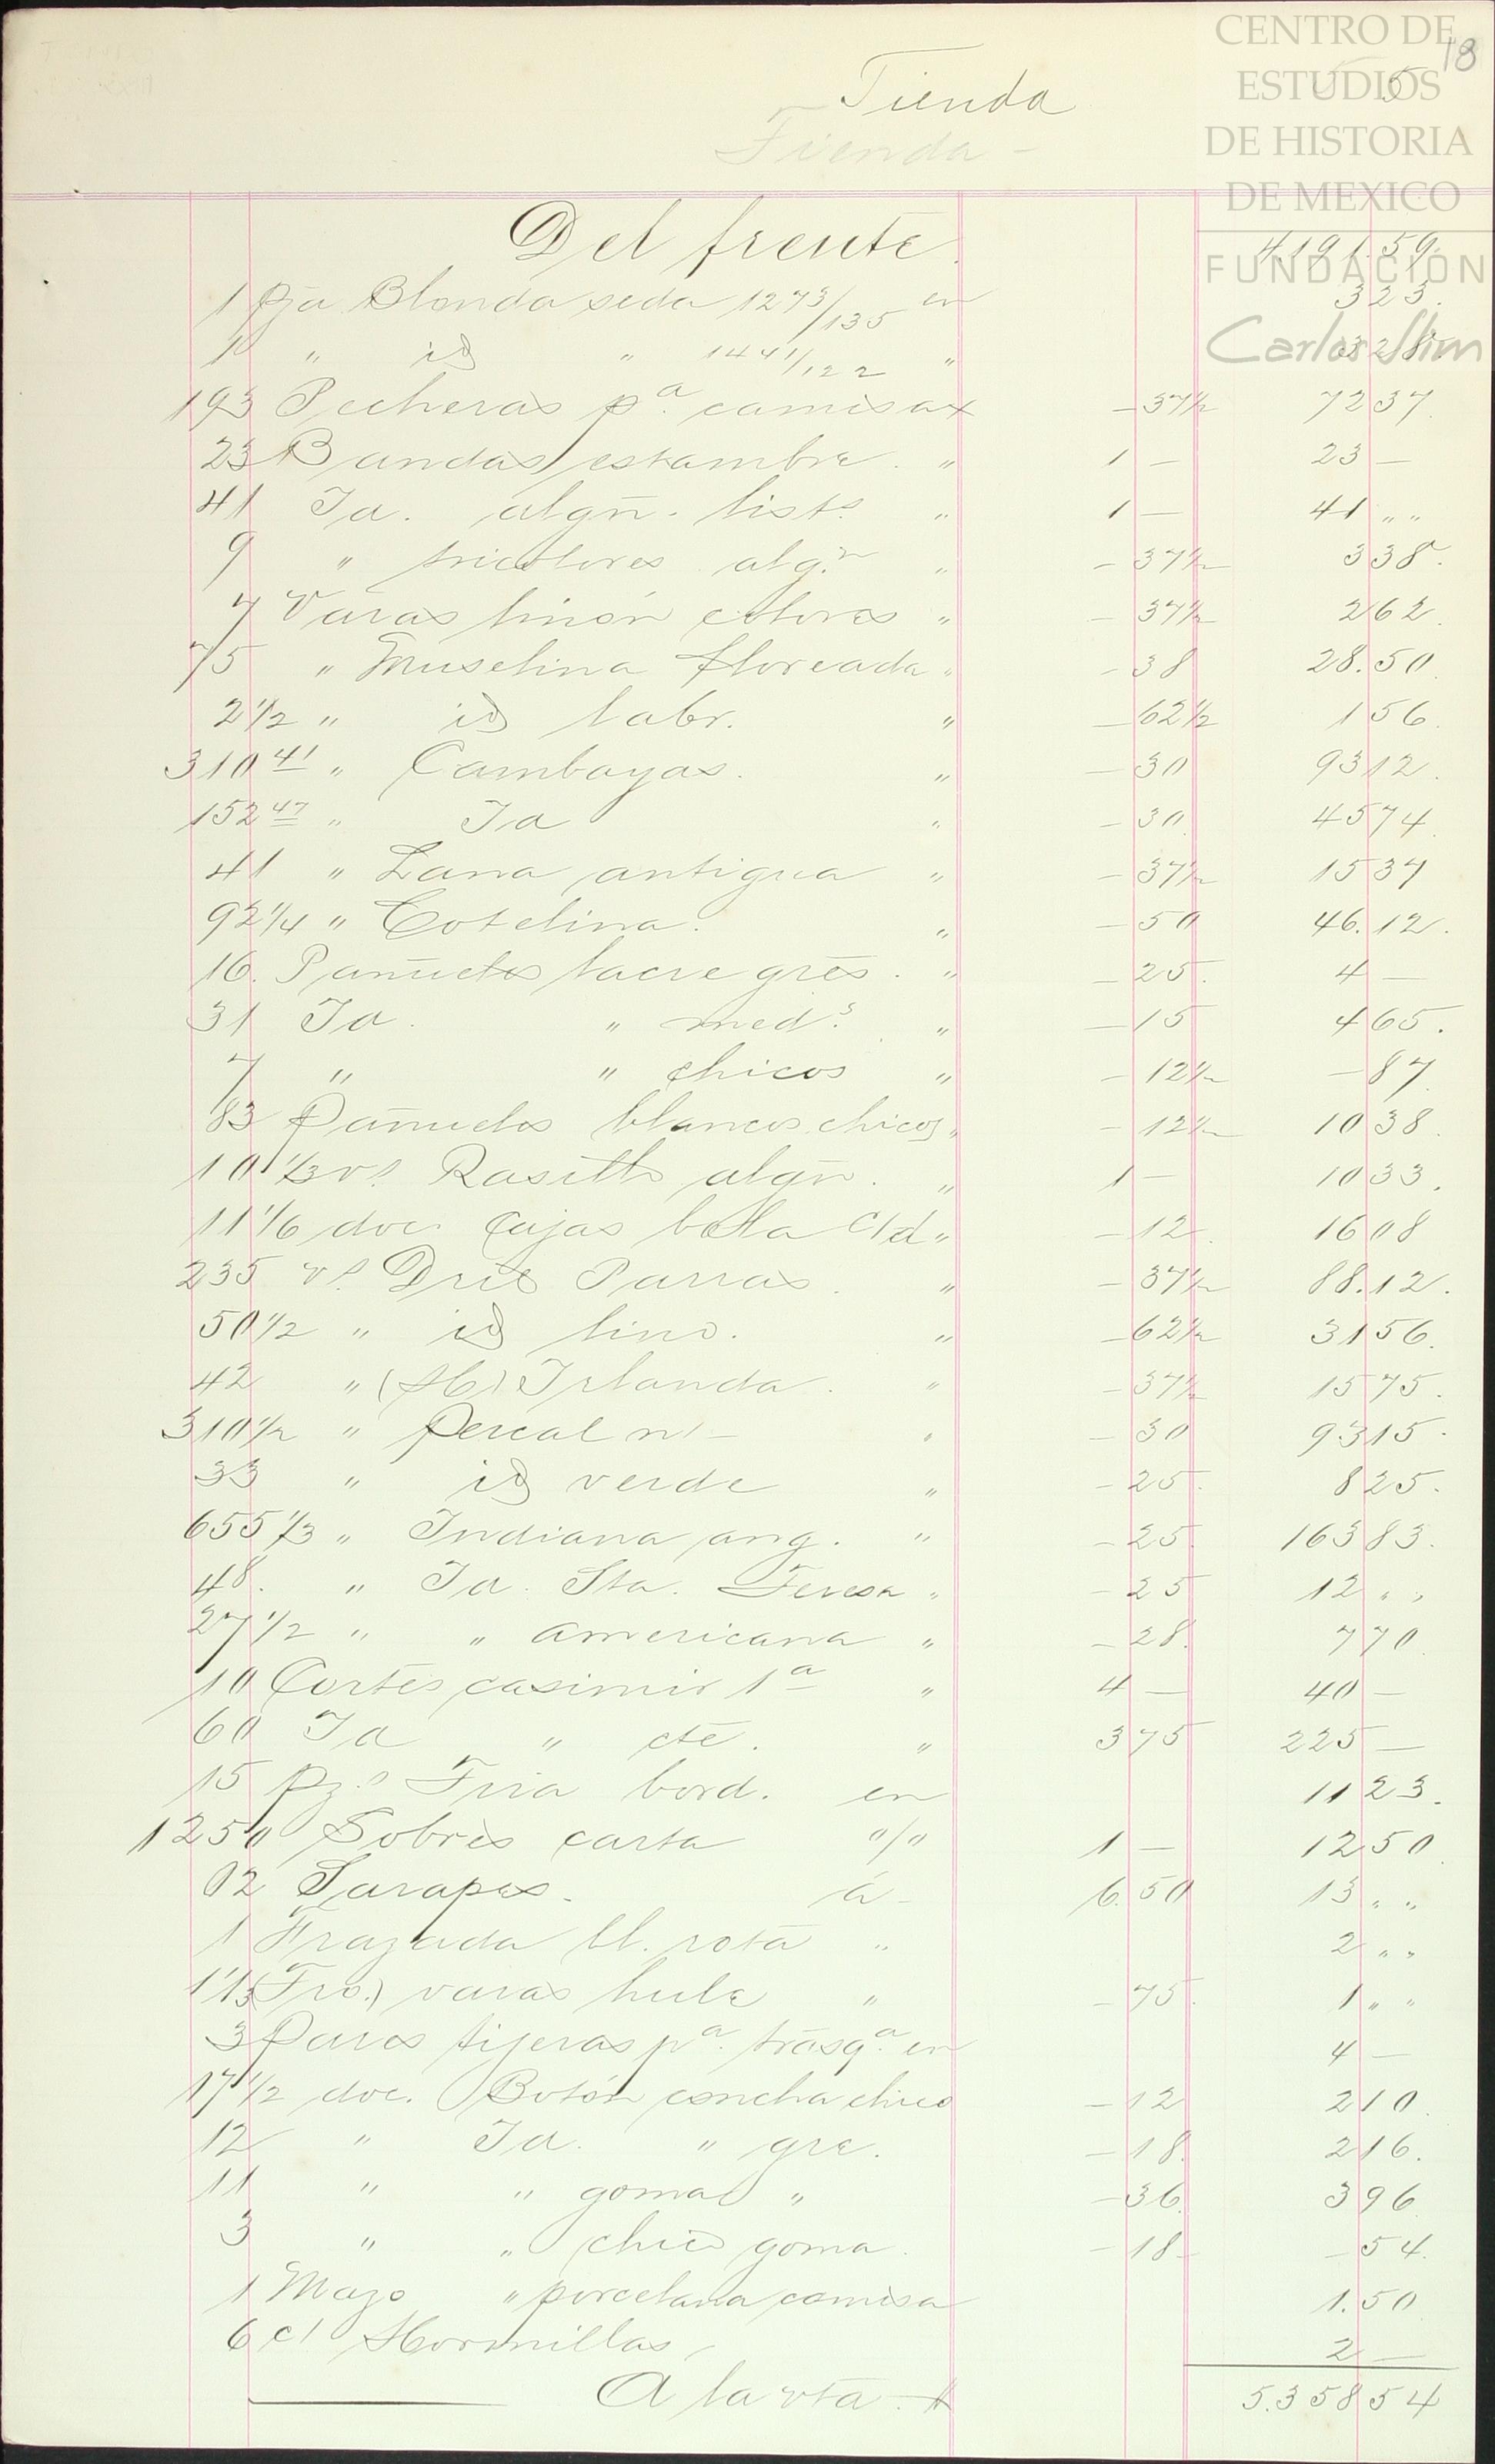 CENTRO DE
ESTUDIOS
DE HISTORIA
DE MEXICO
FUNDACIÓN
Carlos Slim
18
5
Tienda
Tienda -
Del frente. 4.191.59.
1 Pza Blonda seda 1273/135 en 3 23.
1 " id " 1441/122 " 3 28.
193 Pecheras pa. camisax — 37½ 72 37.
23 Bandas estambre. " 1 — 23 —
41 Id. algn. list.s " 1 — 41 " "
9 " tricolores alg.n " — 37½ 3 38.
7 Varas linón colores " — 37½ 2 62.
75 " Muselina floreada " — 38 28.50.
2½ " id labr. " — 62½ 1 56.
310 41 " Cambayas. " — 30 93 12.
152 47 " Id " — 30. 45 74.
41 " Lana antigua " — 37½ 15 37
92¼ " Cotelina. " — 50 46.12.
16. Pañuelos lacre grēs. " — 25. 4 —
31 Id. " med.s " — 15 4 65.
7 " " chicos " — 12½ — 87.
83 Pañuelos blancos chicos " — 12½ 10 38.
10⅓ v.s Rasete algn. " 1 — 10 33.
11 1/6 doc. Cajas bola c/d " — 12. 16 08
235 v.s Dril Parras. " — 37½ 88.12.
50½ " id lino. " — 62½ 31 56.
42 " (H) Irlanda. " — 37½ 15 75.
310½ " Percal n1 — " — 30 93 15.
33 " id verde " — 25. 8 25.
655⅓ " Indiana ang. " — 25. 163 83.
48. " Id. Sta. Teresa " — 25 12 " "
27½ " " americana " — 28. 7 70.
10 Cortes casimir 1a " 4 — 40 —
60 Id " cte. " 3 75 225 —
15 pz.s Tira bord. en 11 23.
1250 Sobres carta "/" 1 — 12 50.
02 Sarapes. á — 6.50 13 " "
1 Frazada bl. rota " 2 " "
1⅓ (Tro.) varas hule " — 75. 1 " "
3 Pares tijeras pa. trasqa. en 4 —
17½ doc. Botón concha chico — 12 2 10.
12 " Id. " gre. — 18. 2 16.
11 " " goma " — 36. 3 96
3 " " chico goma. — 18 — — 54.
1 Mazo " porcelana camisa 1.50
6 c/ Hormillas, 2 —
A la vta. # 5.358 54